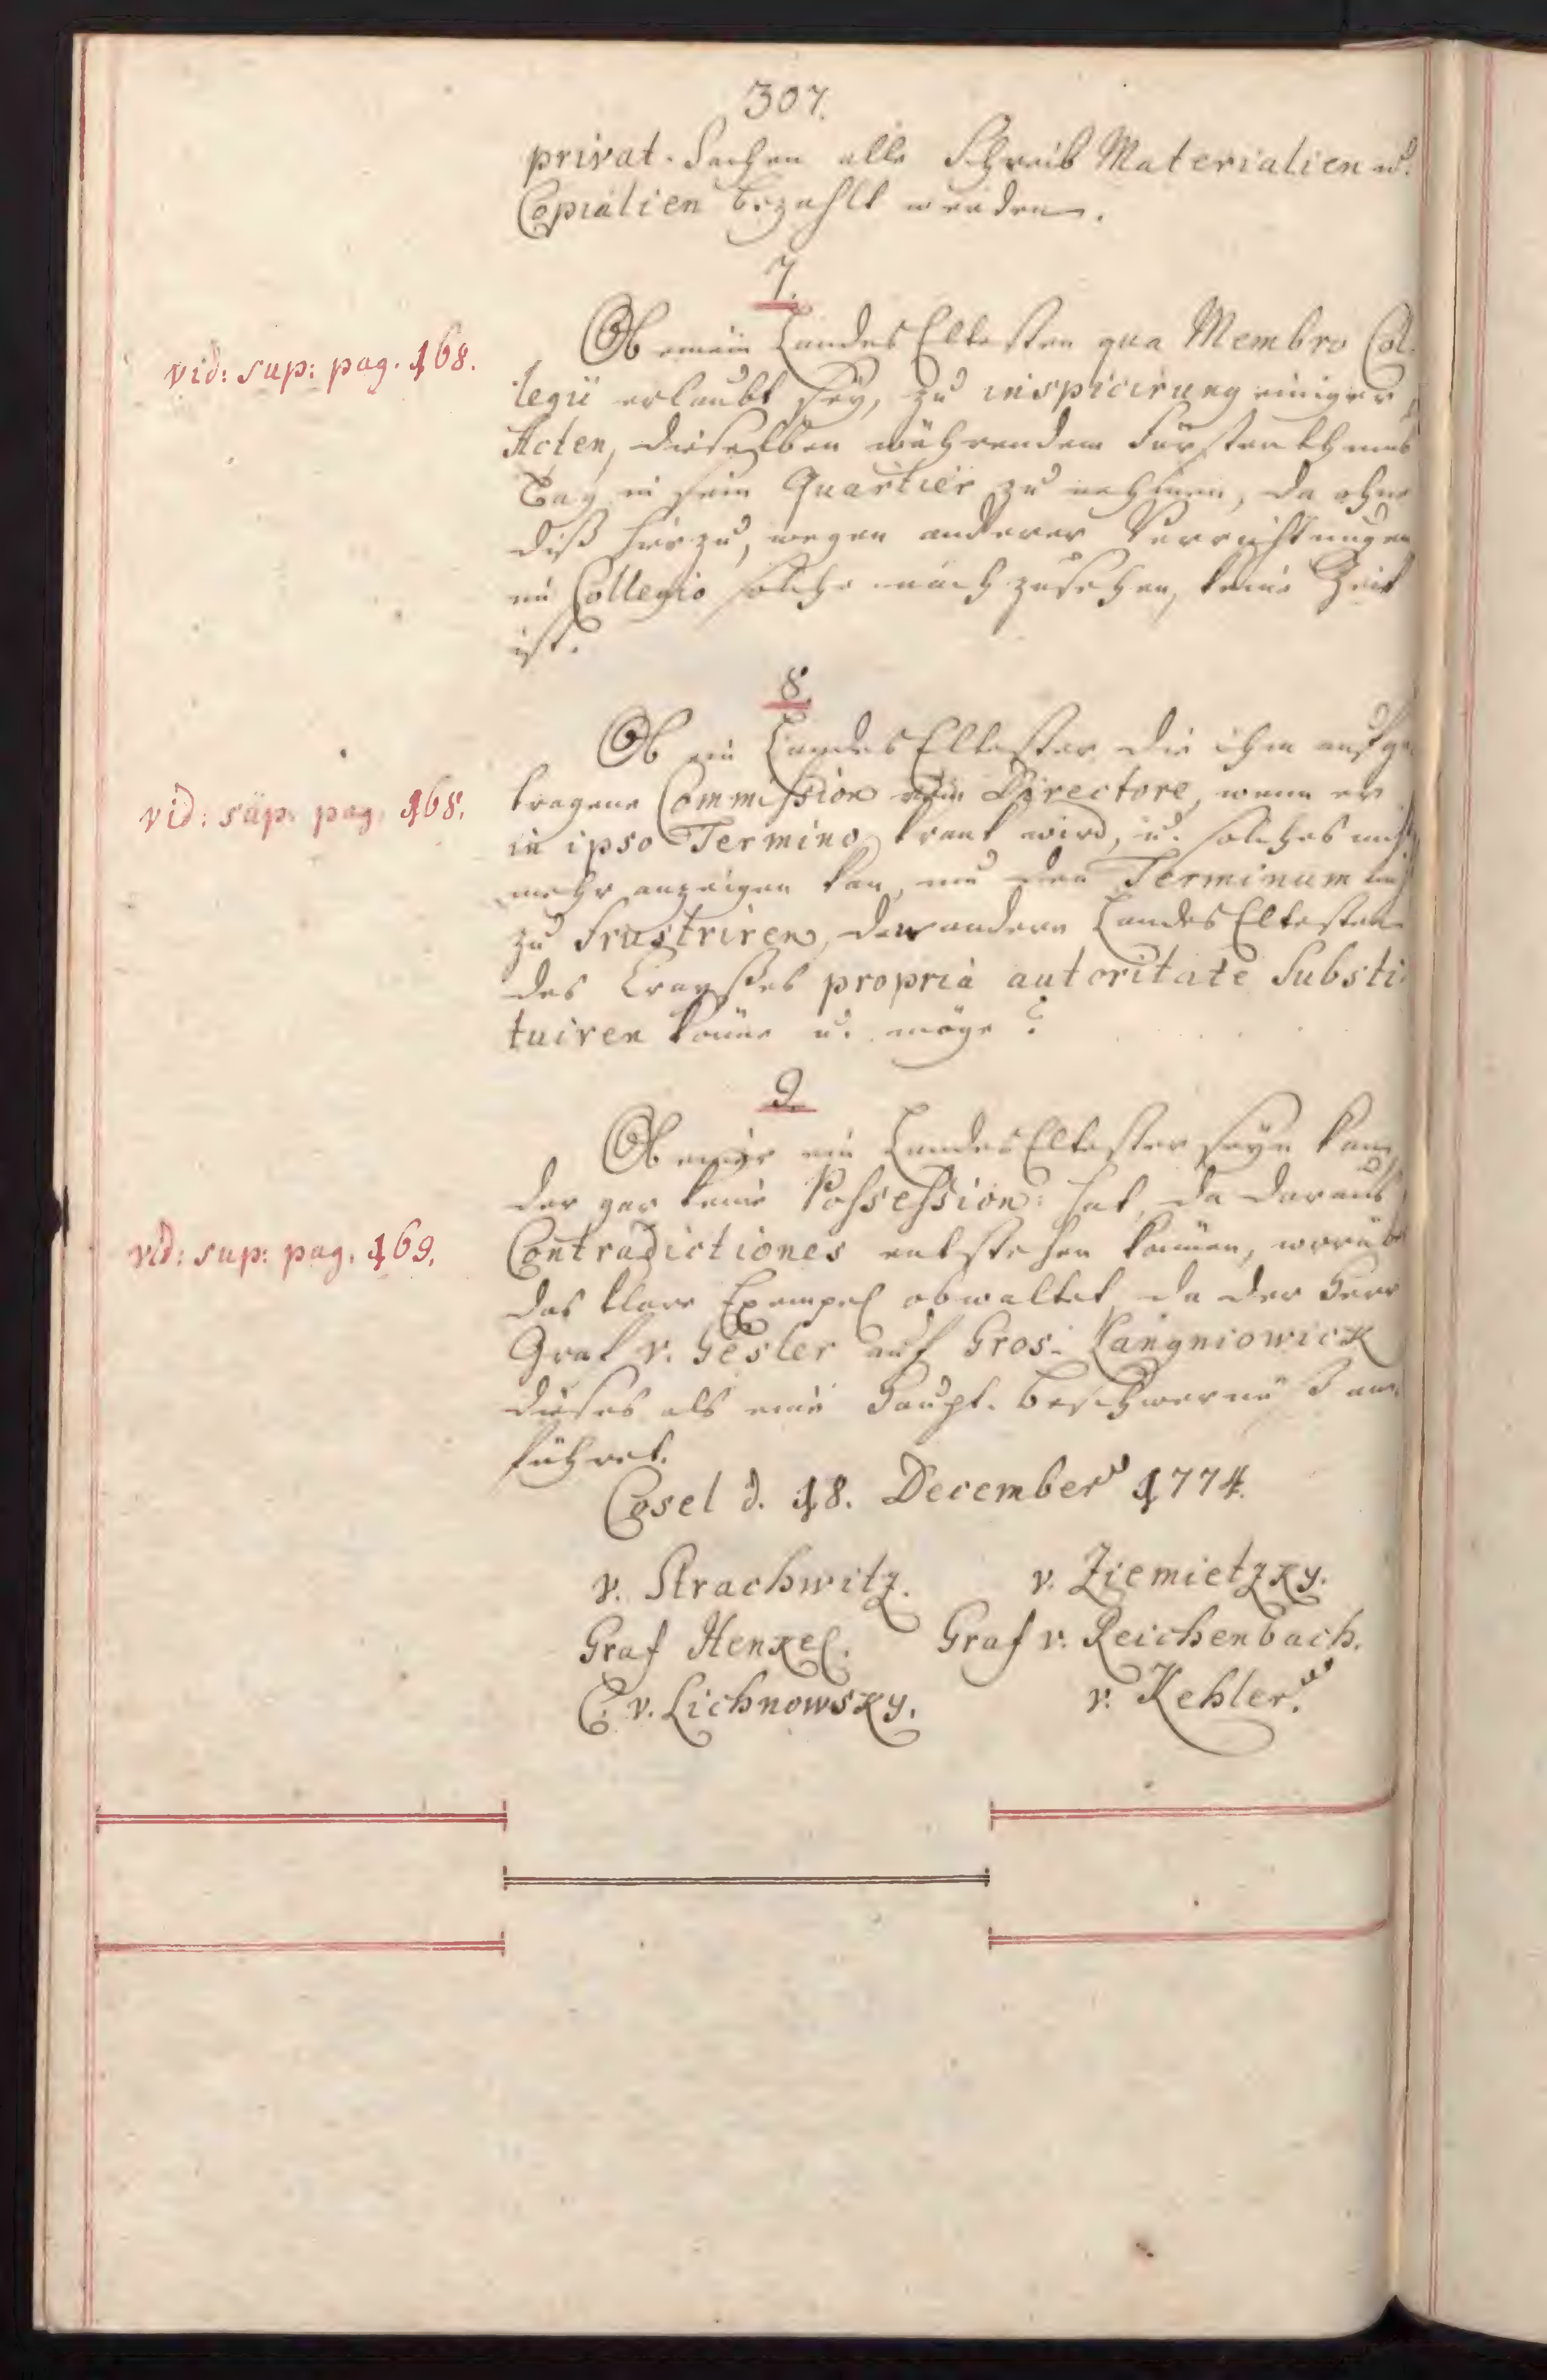 307.
privat-Sachen alle Schreib Materialien u.
Copialien bezahlt werden.
7.
vid: sup: pag. 168.
Ob einem Landes Eltesten qua Membro Col-
legii erlaubt sey, zu inspicirung einiger
Acten, dieselben währendem Fürstenthums
Tag in sein Quartier zu nehmen, da ohne
diß hierzu, wegen anderer Verrichtungen
im Collegio solche nachzusehen, keine Zeit
ist.
8.
vid: sup: pag. 168.
Ob ein Landes Eltester die ihm aufge-
tragene Commission Directore, wenn er
in ipso Termino krank wird, u. solches nicht
mehr anzeigen kan, um den Terminum nicht
zu frustriren, den andern Landes Eltesten
des Crayßes propria autoritate Substi-
tuiren könne u. möge?
9.
Ob einer ein Landes Eltester seyn kan,
der gar keine Possession: hat, da daraus
vid: sup: pag. 169.
Contradictiones entstehen können, worüber
das klare Exempel obwaltet, da der Herr
Graf v. Gesler auf Gros-Langniowick
dieses als eine Haupt-Beschwernüß an-
führet.
Cosel d. 18. December 1774.
v. Strachwitz. v. Ziemietzky.
Graf Henkel. Graf v. Reichenbach.
C. v. Lichnowsky. v. Kehler.